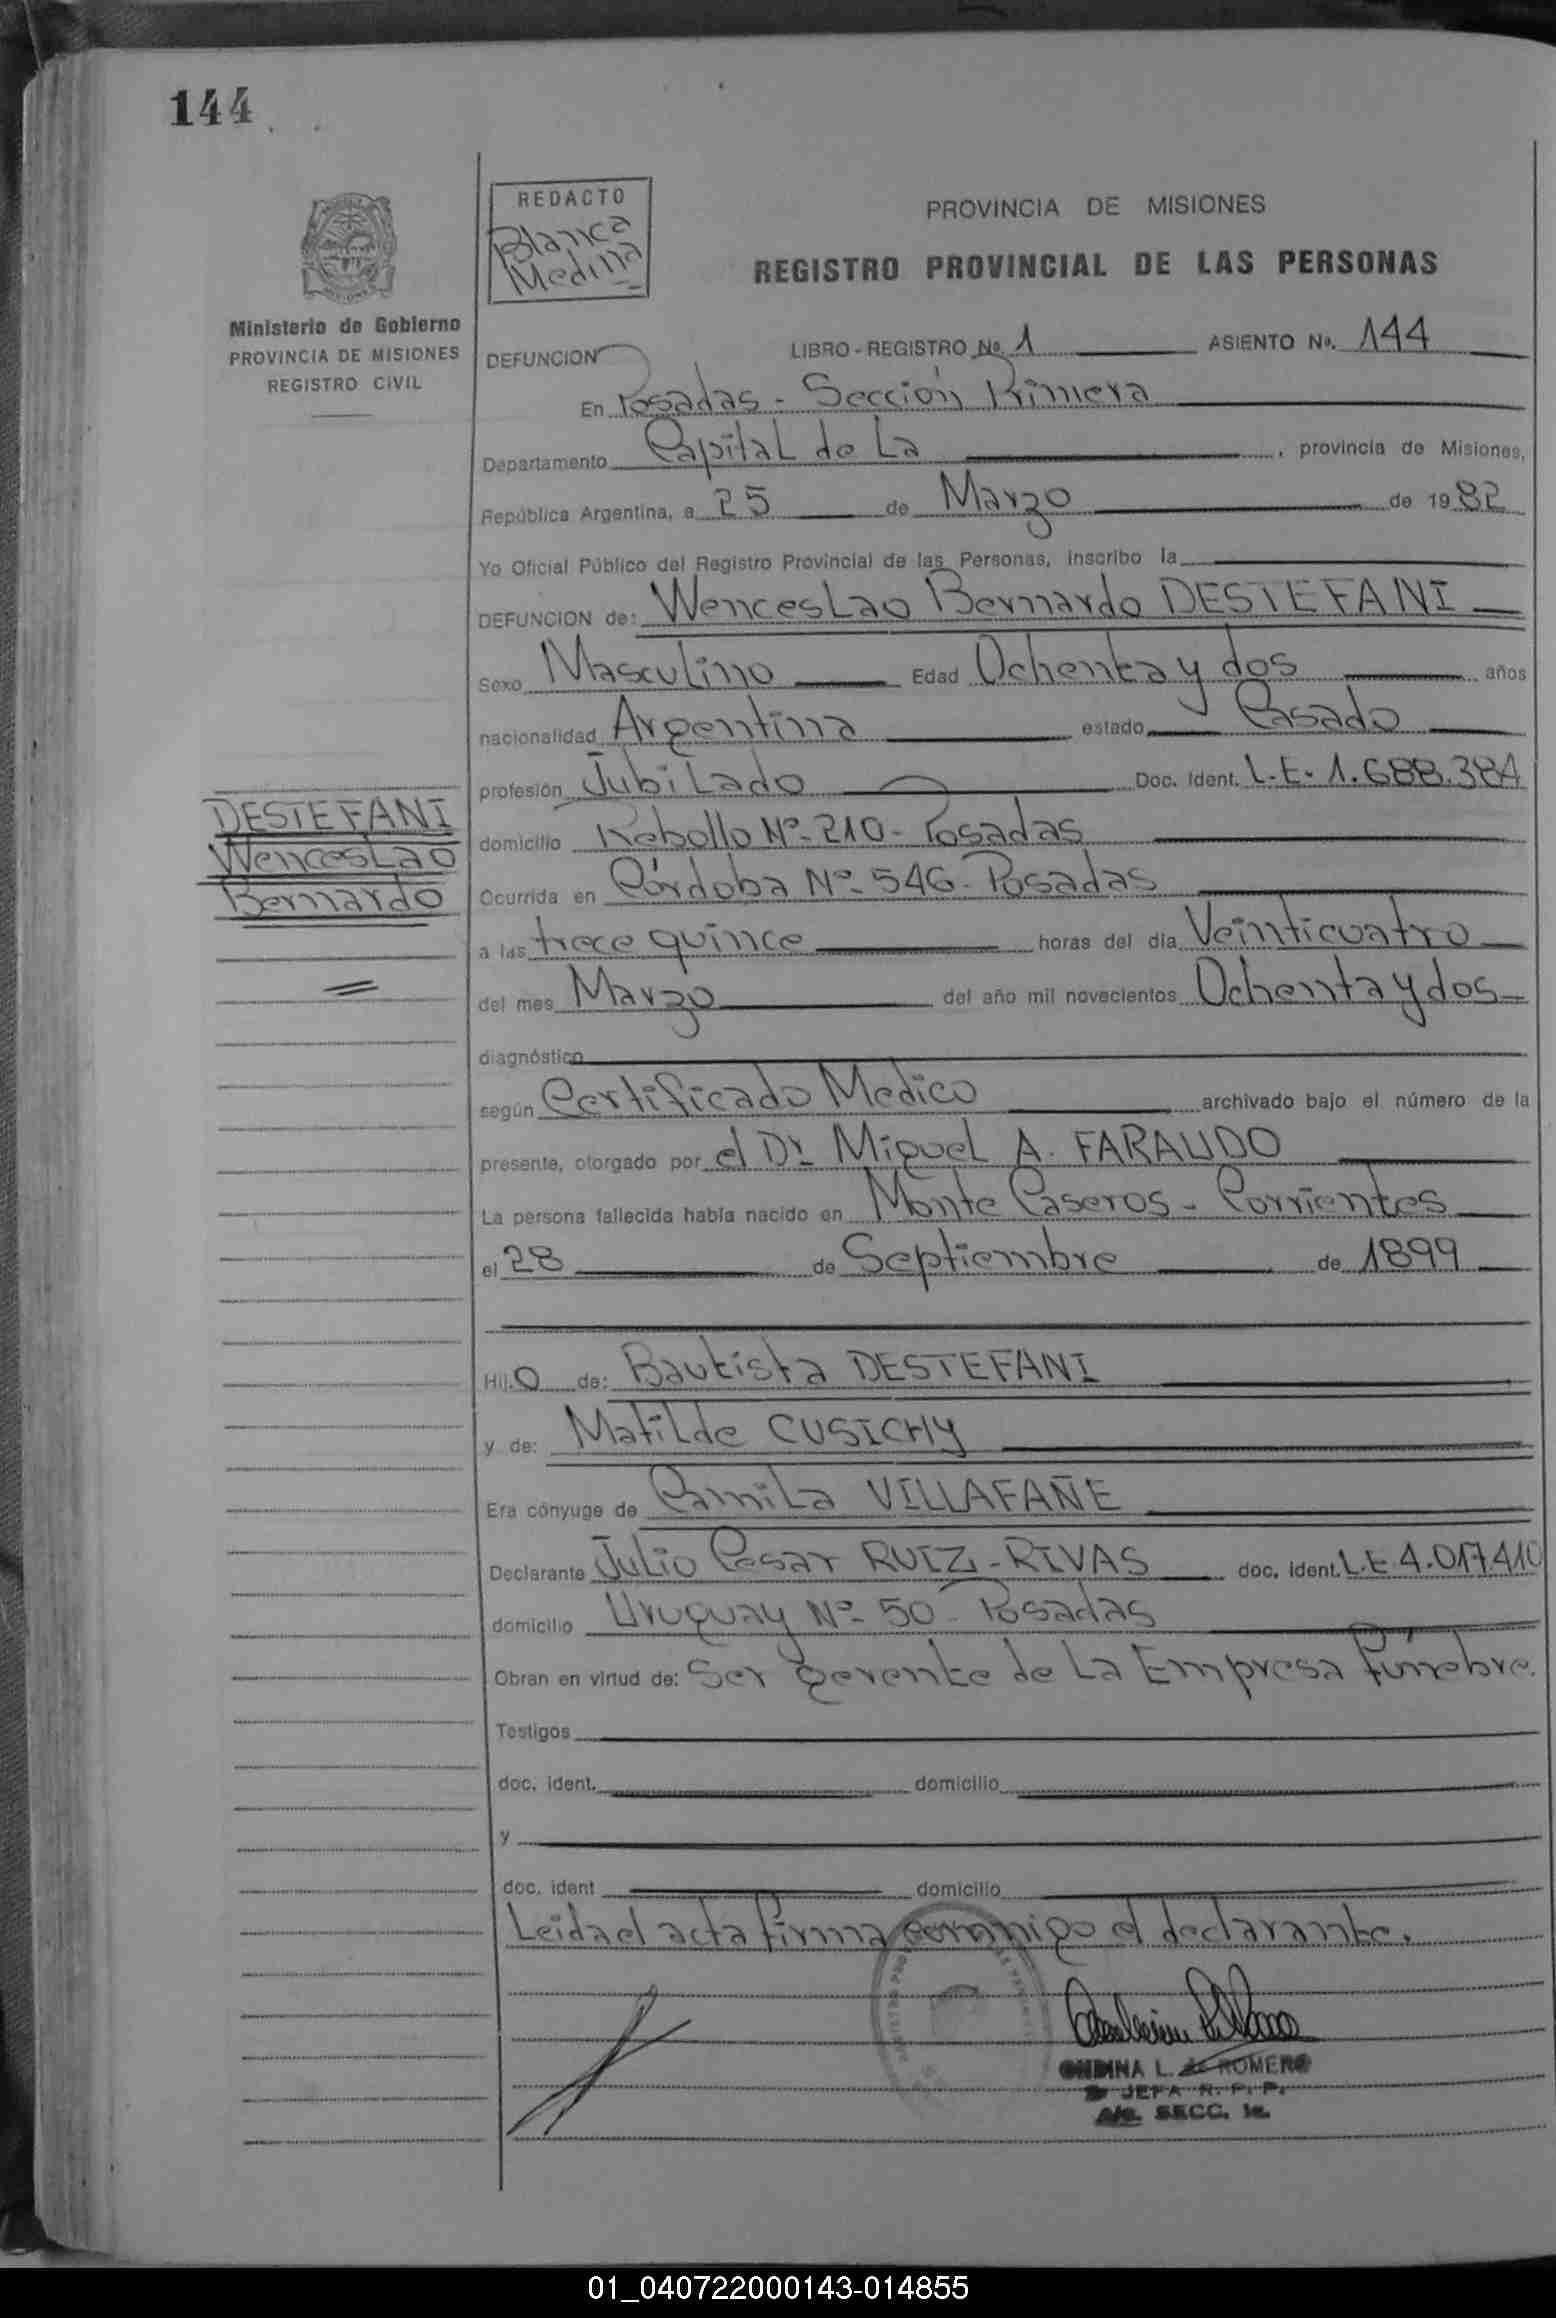 144
REDACTO
Blanca
Medina
Ministerio de Gobierno
PROVINCIA DE MISIONES
REGISTRO CIVIL
PROVINCIA DE MISIONES
REGISTRO PROVINCIAL DE LAS PERSONAS
DEFUNCION LIBRO - REGISTRO No. 1 ASIENTO No. 144
En Posadas - Sección Primera
Departamento Capital de La , provincia de Misiones,
República Argentina, a 25 de Marzo de 1982
Yo Oficial Público del Registro Provincial de las Personas, inscribo la
DEFUNCION de: Wenceslao Bernardo DESTEFANI
Sexo Masculino Edad Ochenta y dos años
nacionalidad Argentina estado Casado
profesión Jubilado Doc. Ident. L.E. 1.688.384
DESTEFANI
Wenceslao
Bernardo
domicilio Rebollo Nº 210 - Posadas
Ocurrida en Córdoba Nº 546 - Posadas
a las trece quince horas del día Veinticuatro
del mes Marzo del año mil novecientos Ochenta y dos
diagnóstico
según Certificado Medico archivado bajo el número de la
presente, otorgado por el Dr Miguel A. FARAUDO
La persona fallecida había nacido en Monte Caseros - Corrientes
el 28 de Septiembre de 1899
Hij.o de: Bautista DESTEFANI
y de: Matilde CUSICHY
Era cónyuge de Camila VILLAFAÑE
Declarante Julio Cesar RUIZ-RIVAS doc. ident. L.E 4.017.410
domicilio Uruguay Nº 50 - Posadas
Obran en virtud de: Ser gerente de La Empresa Fúnebre.
Testigos
doc. ident. domicilio
y
doc. ident domicilio
Leida el acta firma conmigo el declarante.
ONDINA L. de ROMERO
JEFA R. P. P.
A/c. SECC. 1a.
01_040722000143-014855